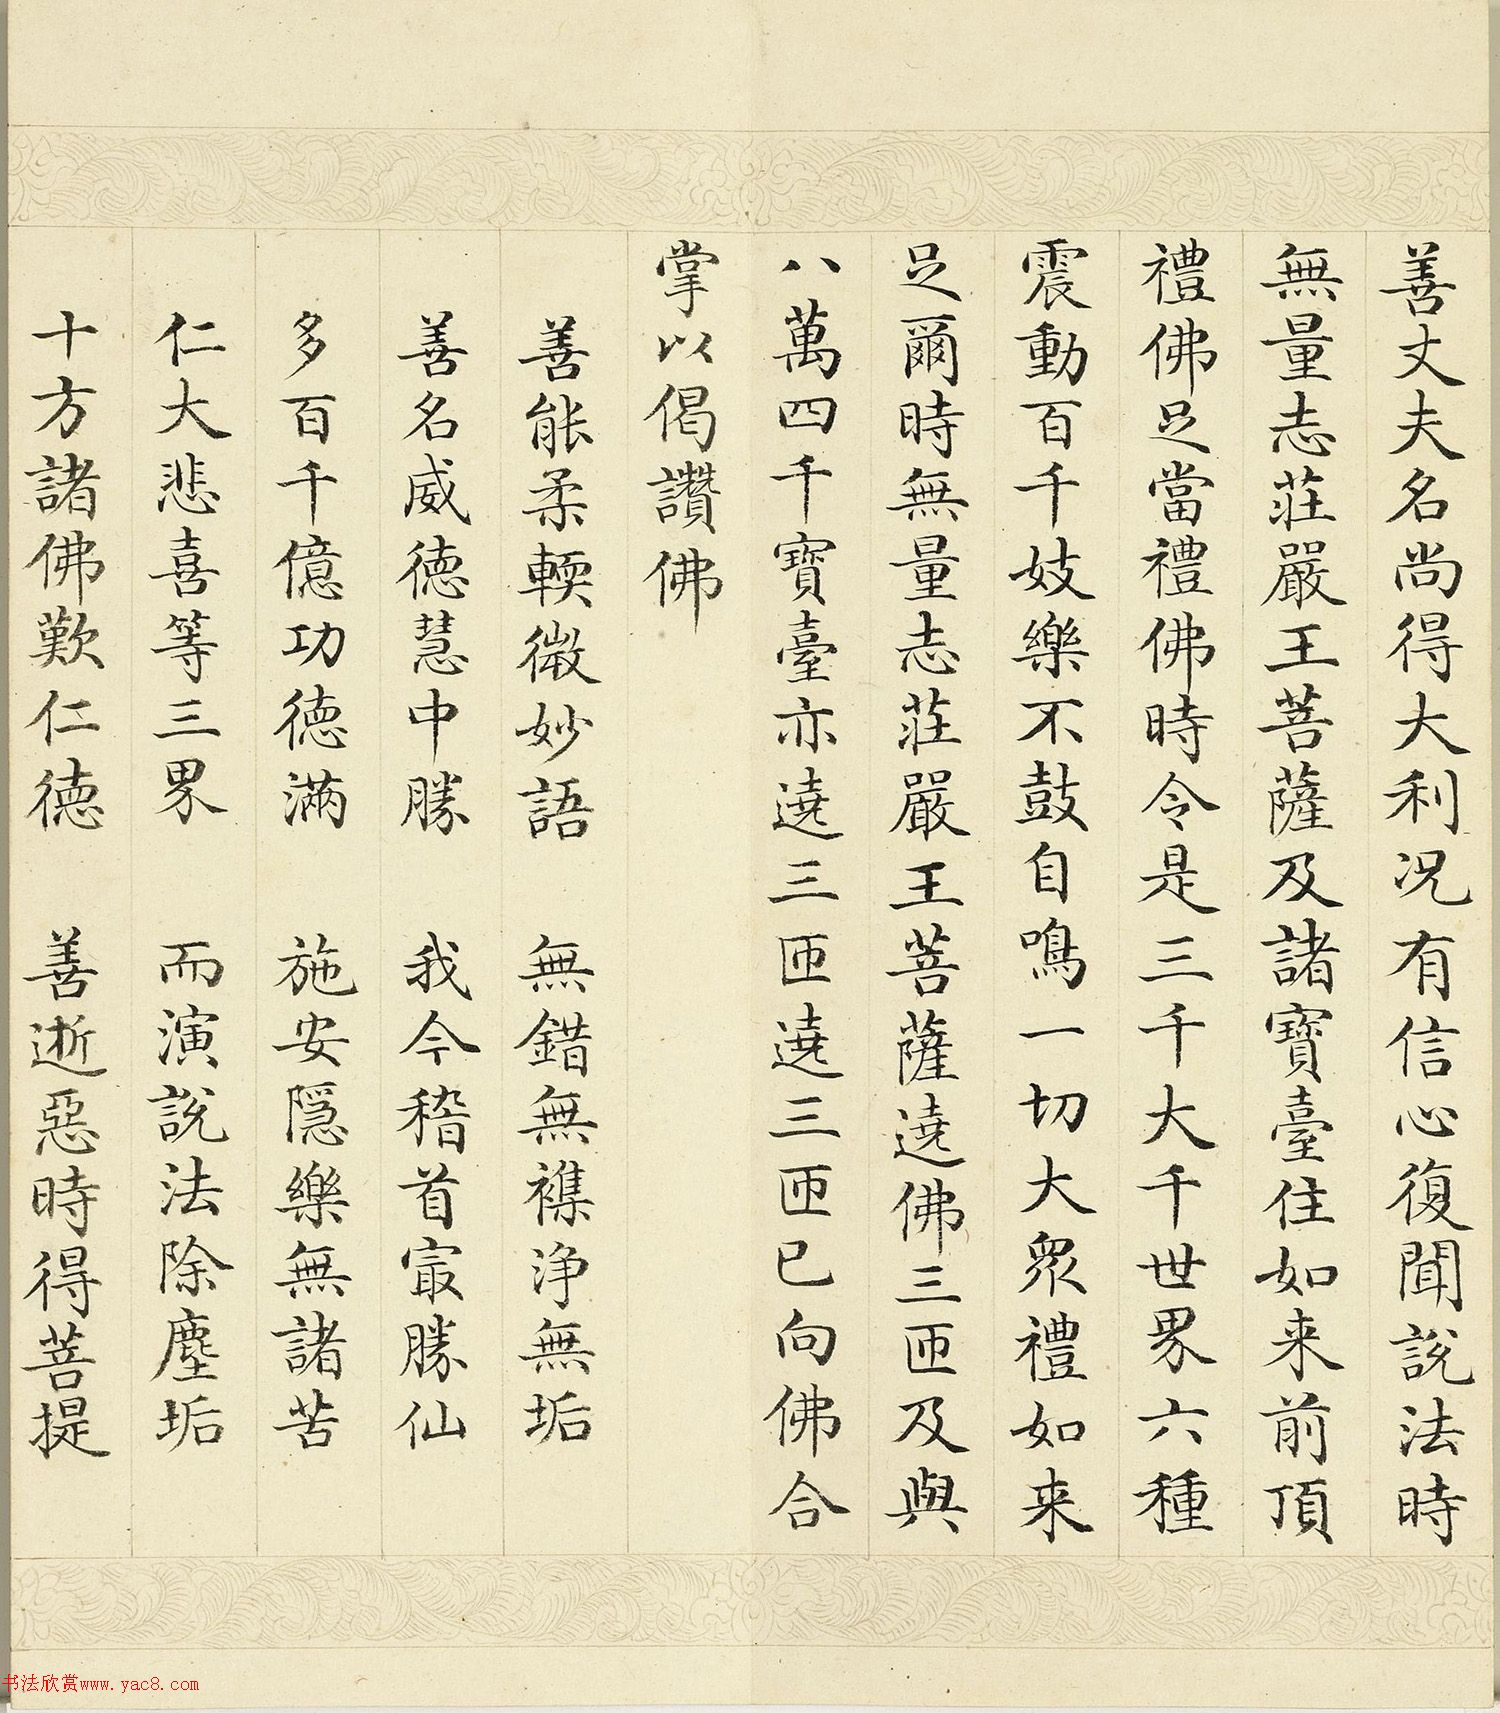 善丈夫名尚得大利况有信心復聞說法時
無量志莊嚴王菩薩及諸寶臺住如来前頂
禮佛足當禮佛時令是三千大千世界六種
震動百千妓樂不鼓自鳴一切大眾禮如来
足爾時無量志莊嚴王菩薩遶佛三匝及與
八萬四千寶臺亦遶三匝遶三匝已向佛合
掌以偈讚佛
善能柔輭微妙語　無錯無襍淨無垢
善名威德慧中勝　我今稽首㝡勝仙
多百千億功德滿　施安隱樂無諸苦
仁大悲喜等三界　而演說法除塵垢
十方諸佛歎仁德　善逝惡時得菩提
书法欣赏www.yac8.com